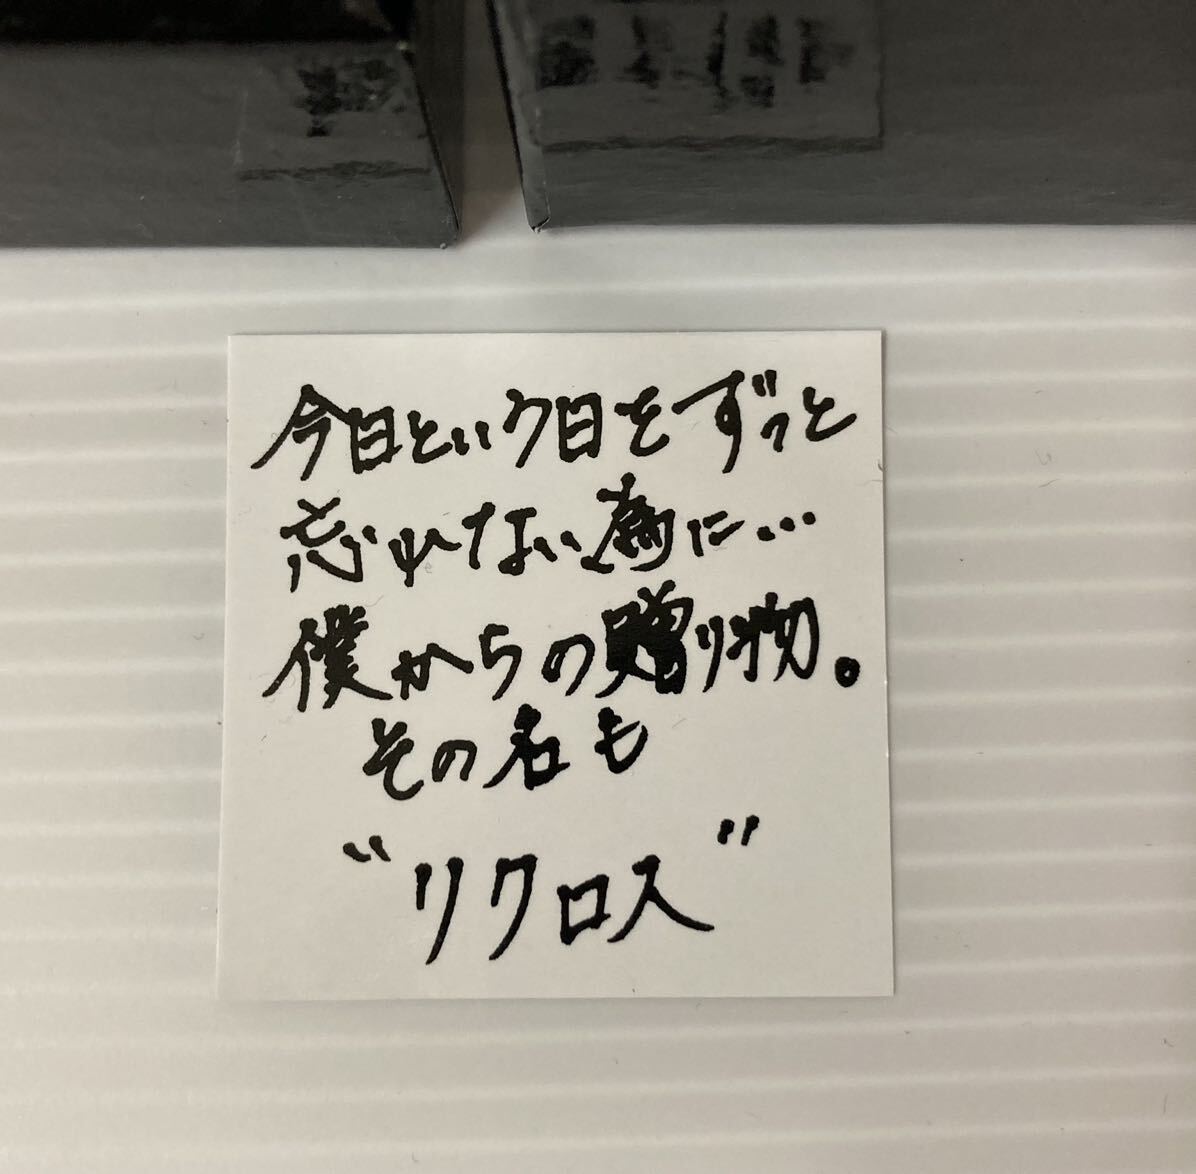 今日という日をずっと
忘れない為に…
僕からの贈り物。
その名も
"リクロス"